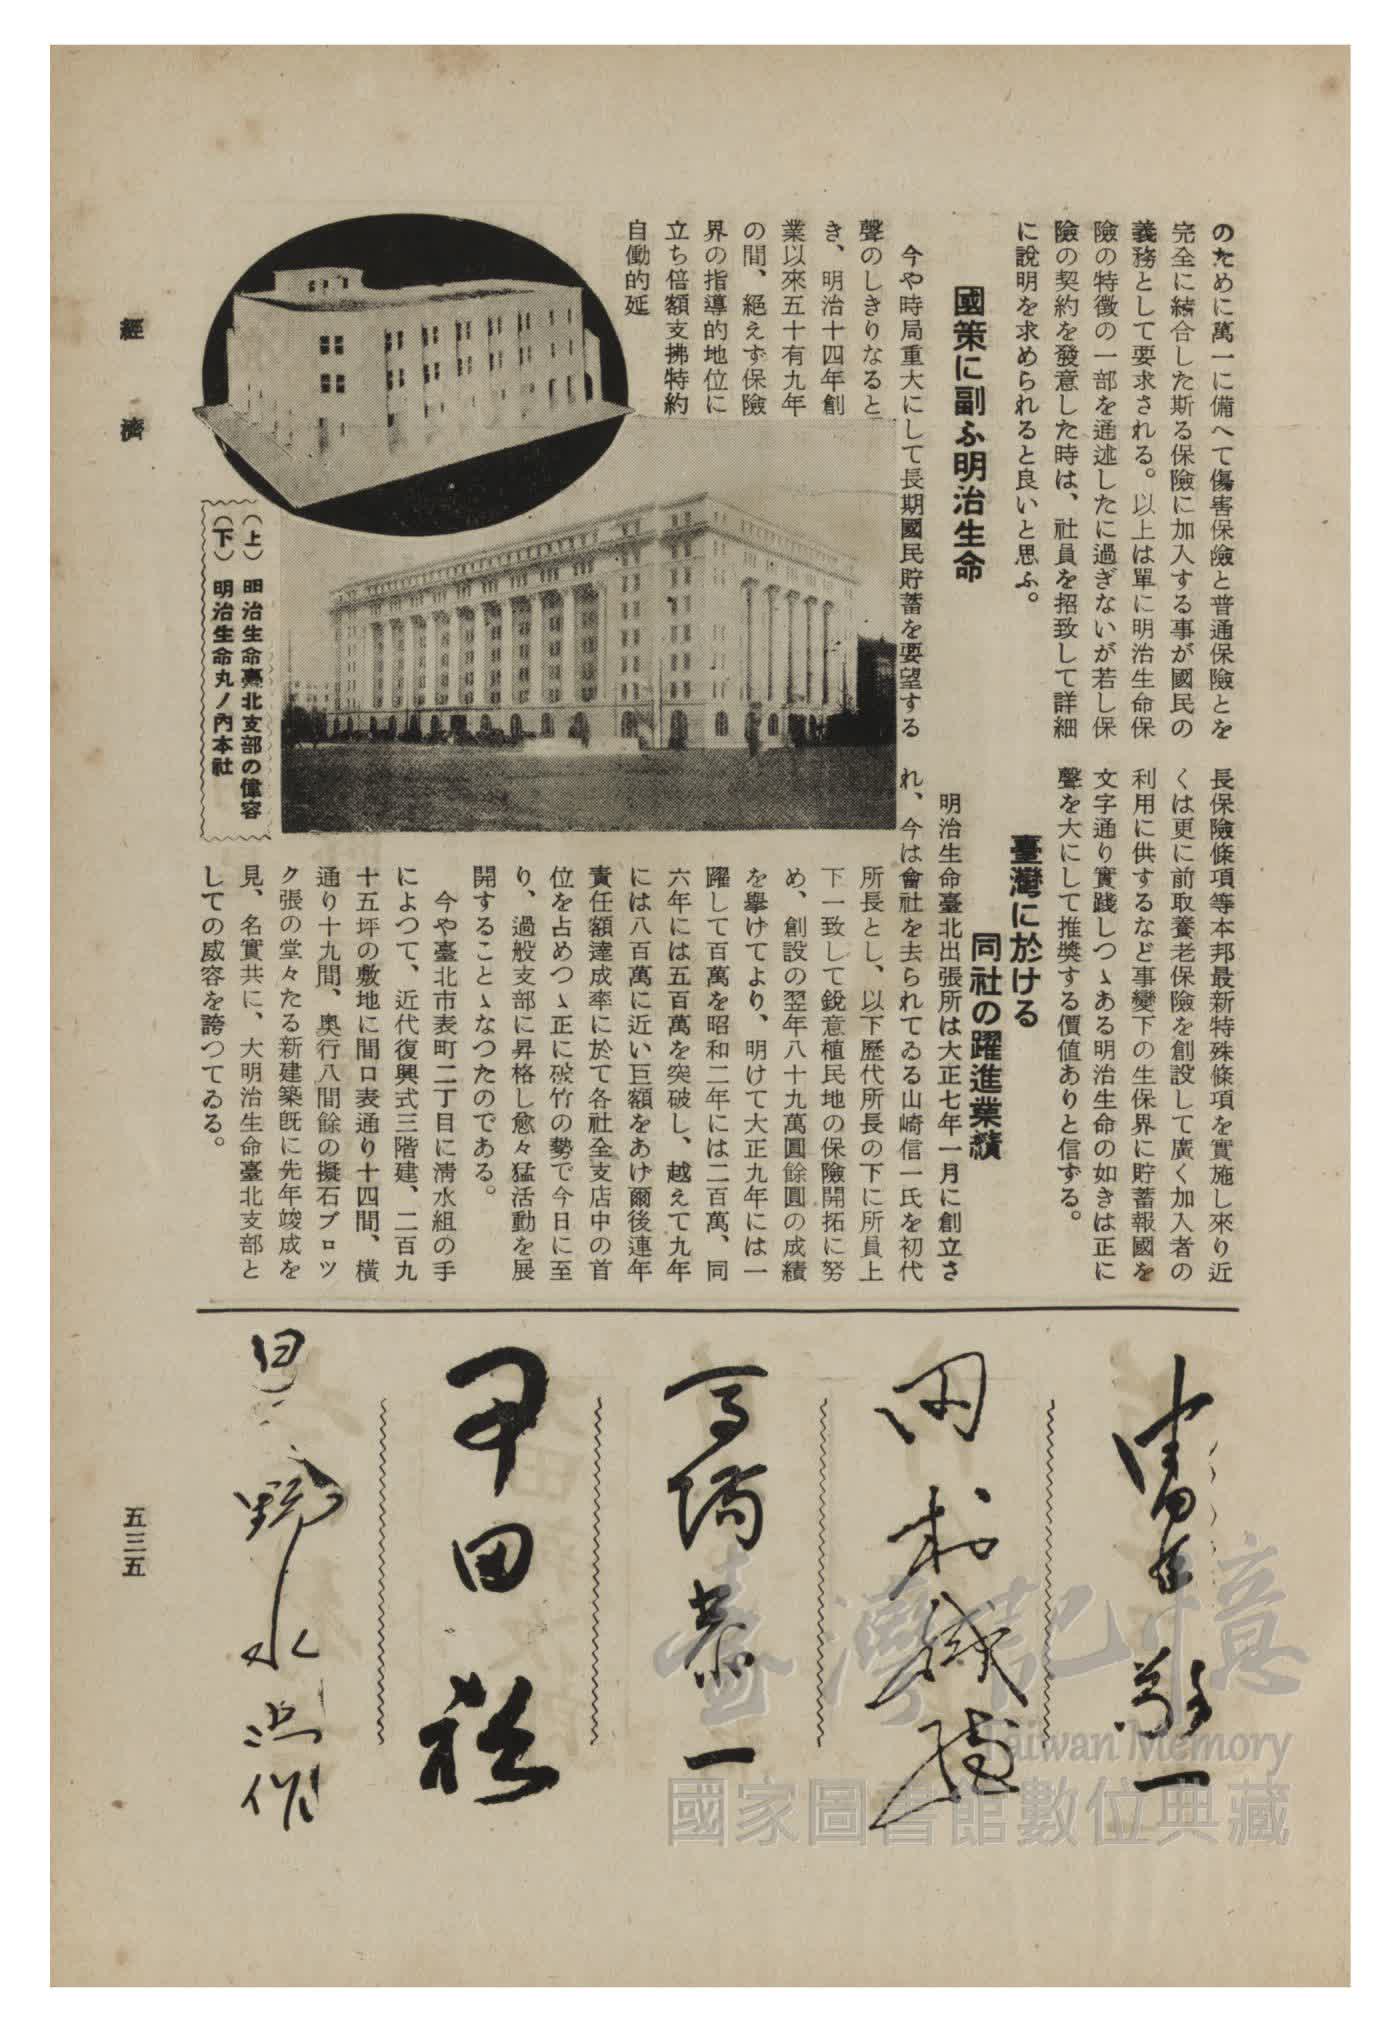 のために萬一に備へて傷害保險と普通保險とを
完全に結合した斯る保險に加入する事が國民の
義務として要求される。以上は單に明治生命保
險の特徴の一部を通述したに過ぎないが若し保
險の契約を發意した時は、社員を招致して詳細
に說明を求められると良いと思ふ。
國策に副ふ明治生命
今や時局重大にして長期國民貯蓄を要望する
聲のしきりなると
き、明治十四年創
業以來五十有九年
の間、絕えず保險
界の指導的地位に
立ち倍額支拂特約
自働的延
長保險條項等本邦最新特殊條項を實施し來り近
くは更に前取養老保險を創設して廣く加入者の
利用に供するなど事變下の生保界に貯蓄報國を
文字通り實踐しつゝある明治生命の如きは正に
聲を大にして推奬する價値ありと信ずる。
臺灣に於ける
同社の躍進業績
明治生命臺北出張所は大正七年一月に創立さ
れ、今は會社を去られてゐる山崎信一氏を初代
所長とし、以下歷代所長の下に所員上
下一致して銳意植民地の保險開拓に努
め、創設の翌年八十九萬圓餘圓の成績
を擧げてより、明けて大正九年には一
躍して百萬を昭和二年には二百萬、同
六年には五百萬を突破し、越えて九年
には八百萬に近い巨額をあげ爾後連年
責任額達成率に於て各社全支店中の首
位を占めつゝ正に破竹の勢で今日に至
り、過般支部に昇格し愈々猛活動を展
開することゝなつたのである。
今や臺北市表町二丁目に淸水組の手
によつて、近代復興式三階建、二百九
十五坪の敷地に間口表通り十四間、橫
通り十九間、奧行八間餘の擬石ブロツ
ク張の堂々たる新建築旣に先年竣成を
見、名實共に、大明治生命臺北支部と
しての威容を誇つてゐる。
(上) 明治生命臺北支部の偉容
(下) 明治生命丸ノ內本社
一
田村
高橋恭一
甲田
野水
經濟
五三五
臺灣記憶
Taiwan Memory
國家圖書館數位典藏